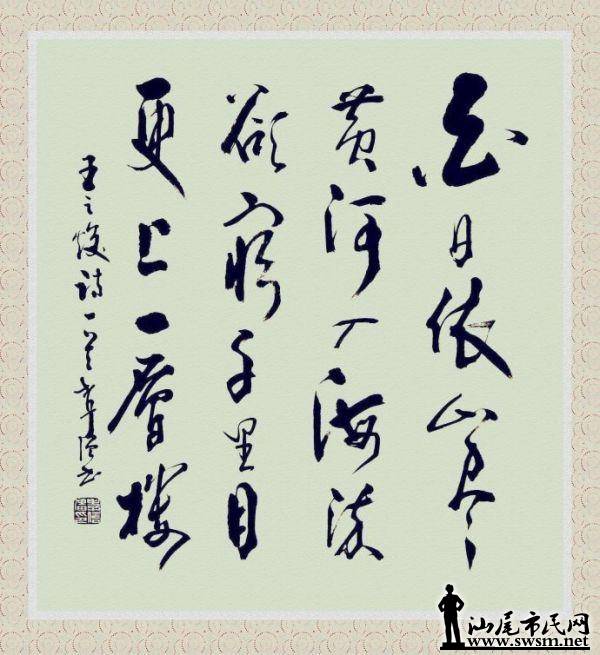 白日依山尽
黄河入海流
欲穷千里目
更上一層楼
王之焕诗一首 书
汕尾市民网
www.swsm.net